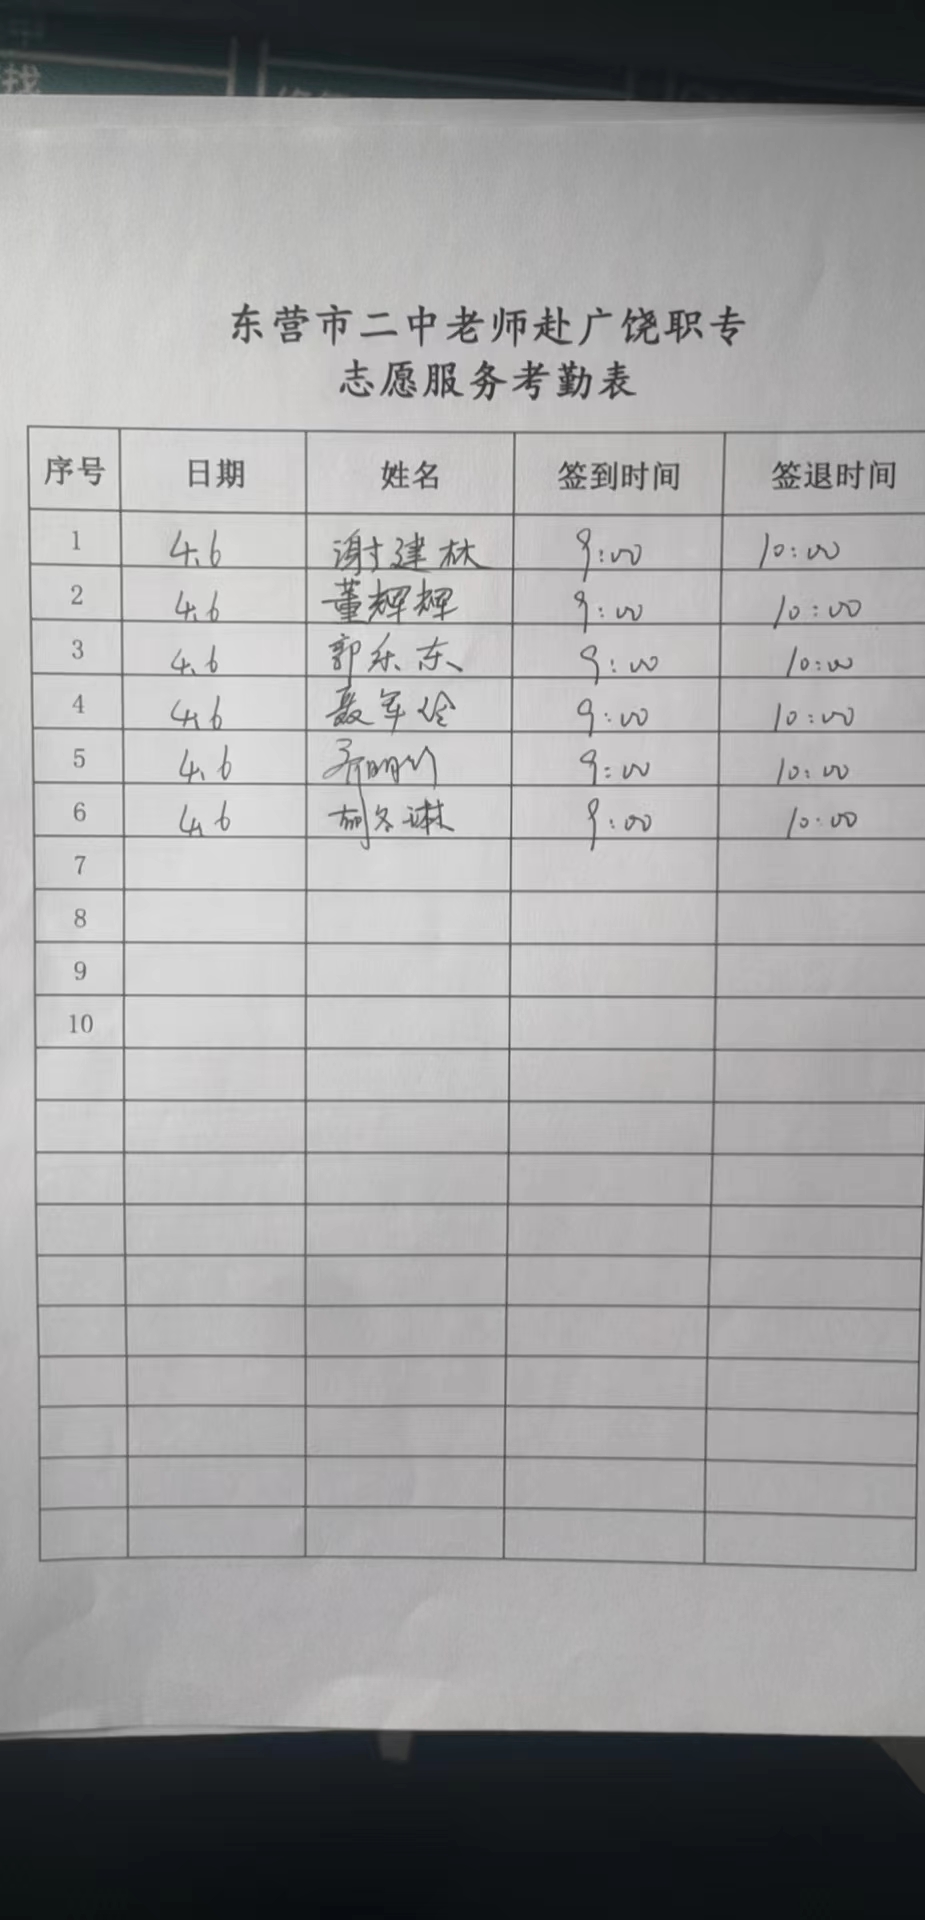 找
东营市二中老师赴广饶职专
志愿服务考勤表
序号 日期 姓名 签到时间 签退时间
1 4.6 谢建林 9:00 10:00
2 4.6 董辉辉 9:00 10:00
3 4.6 郭乐东 9:00 10:00
4 4.6 聂军伶 9:00 10:00
5 4.6 9:00 10:00
6 4.6 胡冬琳 9:00 10:00
7
8
9
10